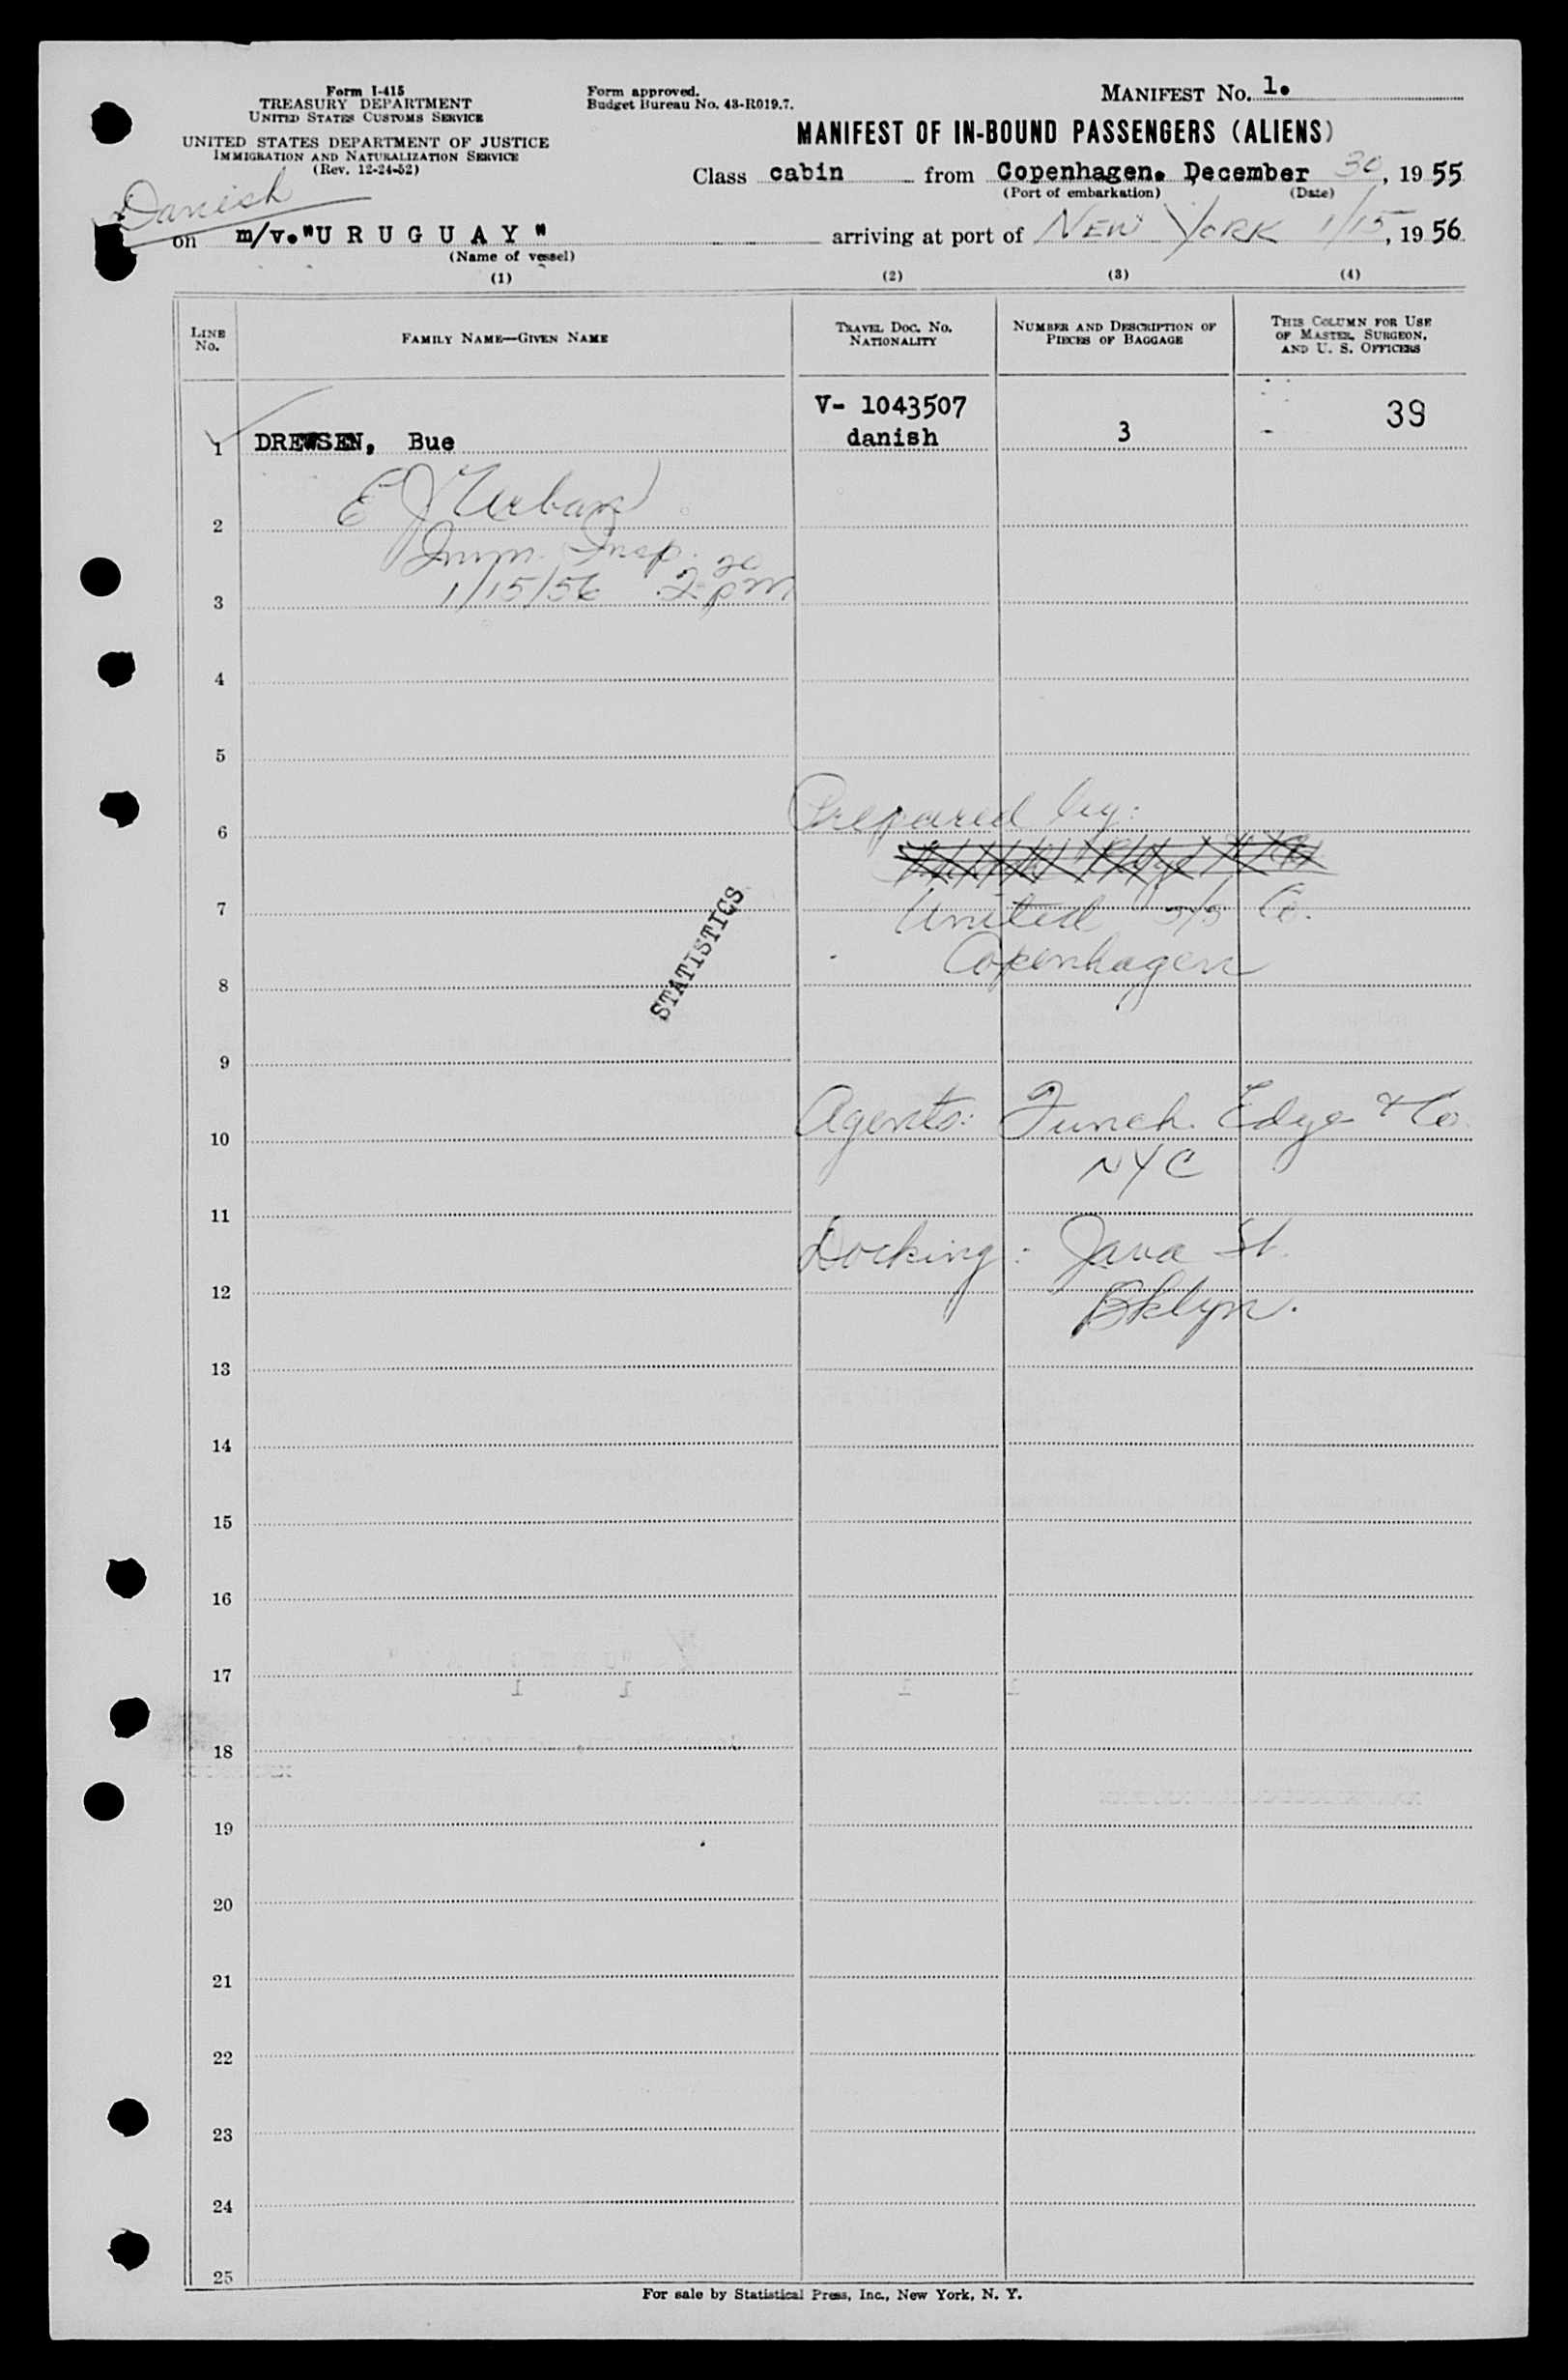 Form I-415
TREASURY DEPARTMENT
UNITED STATES CUSTOMS SERVICE
UNITED STATES DEPARTMENT OF JUSTICE
IMMIGRATION AND NATURALIZATION SERVICE
(Rev. 12-24-52)
Form approved.
Budget Bureau No. 43-R019.7.
MANIFEST No. 1.
MANIFEST OF IN-BOUND PASSENGERS (ALIENS)
Class cabin from Copenhagen. December 30, 1955
(Port of embarkation) (Date)
Danish
on m/v."U R U G U A Y" arriving at port of NEW YORK 1/15, 1956
(Name of vessel)
(1) (2) (3) (4)
LINE No. FAMILY NAME—GIVEN NAME TRAVEL DOC. No. NATIONALITY NUMBER AND DESCRIPTION OF PIECES OF BAGGAGE THIS COLUMN FOR USE OF MASTER, SURGEON, AND U. S. OFFICERS
V- 1043507 39
1 DREWSEN, Bue danish 3
E J Urban
2
Imm. Insp.
1/15/56 2 20 pm
3
4
5
Prepared by:
6
7 United S/S Co.
Copenhagen
8
STATISTICS
9
Agents: Funch Edye & Co
10
NYC
11
Docking: Java St.
12
Bklyn.
13
14
15
16
17
18
19
20
21
22
23
24
25
For sale by Statistical Press, Inc., New York, N. Y.